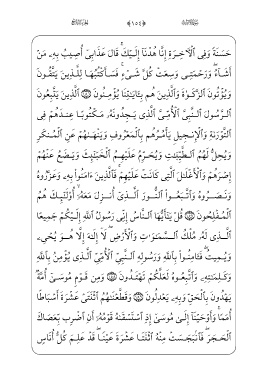 ﴿١٥٤﴾
حَسَنَةً وَفِي الْآخِرَةِ إِنَّا هُدْنَا إِلَيْكَ قَالَ عَذَابِي أُصِيبُ بِهِ مَنْ
أَشَاءُ وَرَحْمَتِي وَسِعَتْ كُلَّ شَيْءٍ فَسَأَكْتُبُهَا لِلَّذِينَ يَتَّقُونَ
وَيُؤْتُونَ الزَّكَوٰةَ وَالَّذِينَ هُم بِآيَاتِنَا يُؤْمِنُونَ ﴿١٥٦﴾ الَّذِينَ يَتَّبِعُونَ
الرَّسُولَ النَّبِيَّ الْأُمِّيَّ الَّذِي يَجِدُونَهُ مَكْتُوبًا عِندَهُمْ فِي
التَّوْرَىٰةِ وَالْإِنجِيلِ يَأْمُرُهُم بِالْمَعْرُوفِ وَيَنْهَىٰهُمْ عَنِ الْمُنكَرِ
وَيُحِلُّ لَهُمُ الطَّيِّبَٰتِ وَيُحَرِّمُ عَلَيْهِمُ الْخَبَٰئِثَ وَيَضَعُ عَنْهُمْ
إِصْرَهُمْ وَالْأَغْلَٰلَ الَّتِي كَانَتْ عَلَيْهِمْ فَالَّذِينَ ءَامَنُوا بِهِ وَعَزَّرُوهُ
وَنَصَرُوهُ وَاتَّبَعُوا النُّورَ الَّذِي أُنزِلَ مَعَهُ أُولَٰئِكَ هُمُ
الْمُفْلِحُونَ ﴿١٥٧﴾ قُلْ يَٰأَيُّهَا النَّاسُ إِنِّي رَسُولُ اللَّهِ إِلَيْكُمْ جَمِيعًا
الَّذِي لَهُ مُلْكُ السَّمَٰوَٰتِ وَالْأَرْضِ لَا إِلَٰهَ إِلَّا هُوَ يُحْيِ
وَيُمِيتُ فَـَٔامِنُوا بِاللَّهِ وَرَسُولِهِ النَّبِيِّ الْأُمِّيِّ الَّذِي يُؤْمِنُ بِاللَّهِ
وَكَلِمَٰتِهِ وَاتَّبِعُوهُ لَعَلَّكُمْ تَهْتَدُونَ ﴿١٥٨﴾ وَمِن قَوْمِ مُوسَىٰ أُمَّةٌ
يَهْدُونَ بِالْحَقِّ وَبِهِ يَعْدِلُونَ ﴿١٥٩﴾ وَقَطَّعْنَٰهُمُ اثْنَتَيْ عَشْرَةَ أَسْبَاطًا
أُمَمًا وَأَوْحَيْنَا إِلَىٰ مُوسَىٰ إِذِ اسْتَسْقَىٰهُ قَوْمُهُ أَنِ اضْرِب بِّعَصَاكَ
الْحَجَرَ فَانبَجَسَتْ مِنْهُ اثْنَتَا عَشْرَةَ عَيْنًا قَدْ عَلِمَ كُلُّ أُنَاسٍ